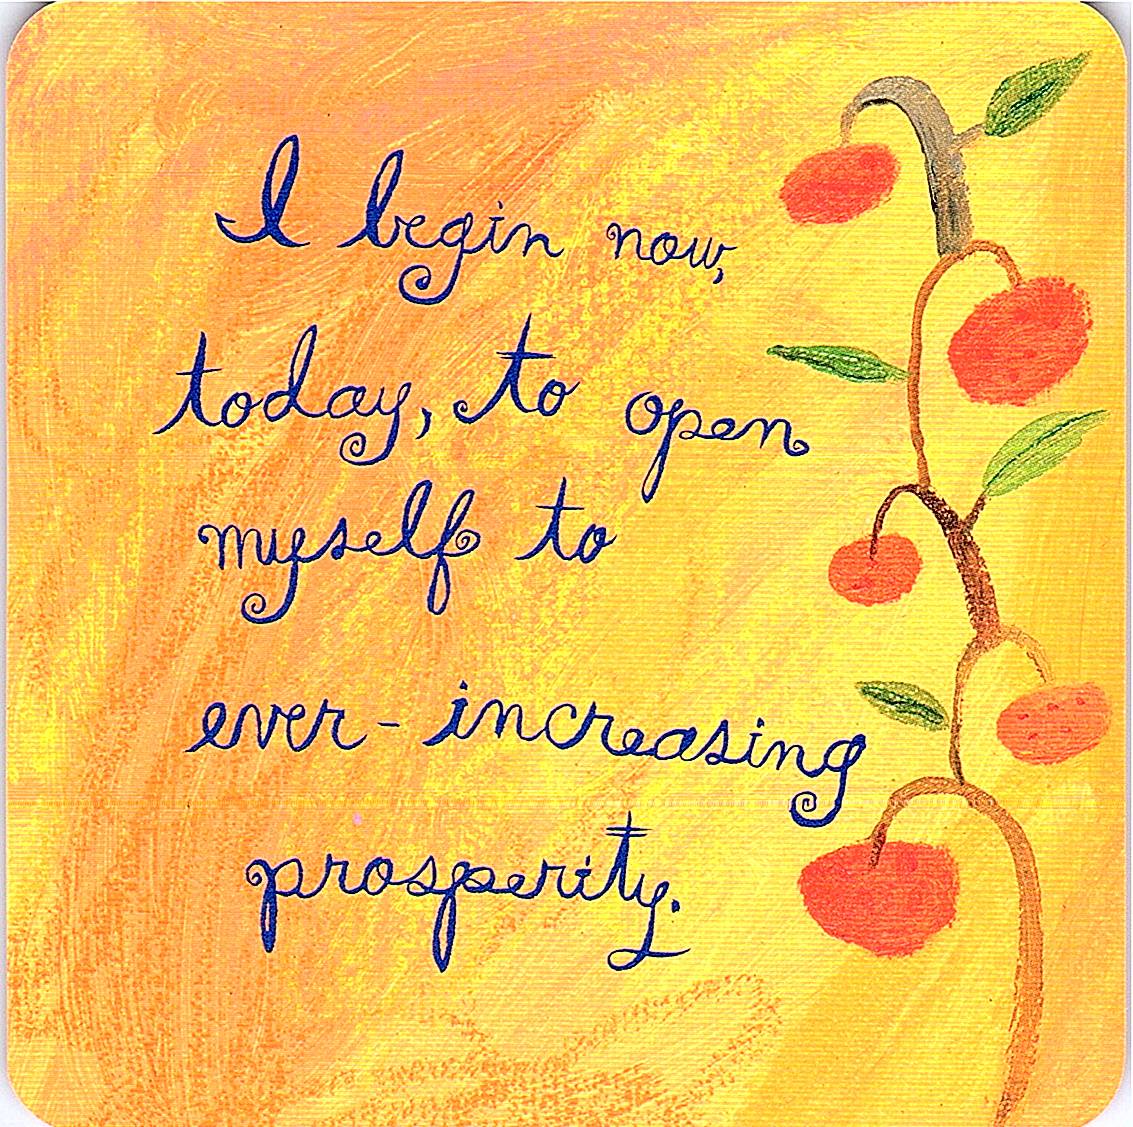 I begin now,
today, to open
myself to
ever-increasing
prosperity.